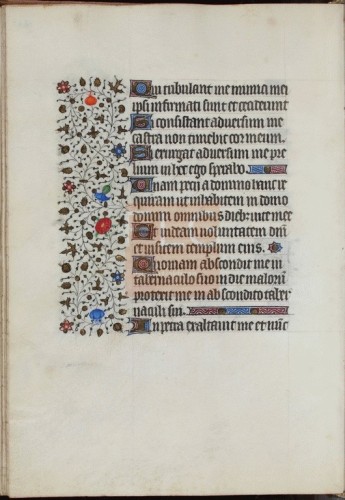 Qui tribulant me inimici mei
ipsi infirmati sunt et ceciderunt
Si consistant adversum me
castra non timebit cor meum.
Si exurgat adversum me pre
lium in hoc ego sperabo.
Unam pecij a domino hanc re
quiram ut inhabitem in domo
domini omnibus dieb: vite mee
Ut videam voluntatem dñi
et visitem templum eius.
Quoniam abscondit me in
tabernaculo suo in die malorũ
protexit me in abscondito taber
naculi sui.
In petra exaltavit me et nũc